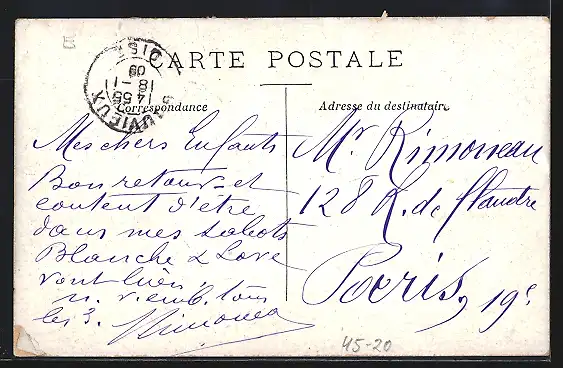 CARTE POSTALE
Correspondance
Adresse du destinataire
GOUVIEUX
OISE
14 55
18 - 1
09
Mes chers Enfants
Bon retour et
content d'etre
dans mes sabots
Blanche &
vont bien
n. v. emb. tous
les 3.
Rimoneau
Mr Rimoneau
128 R. de Flandre
Paris, 19e
45-20